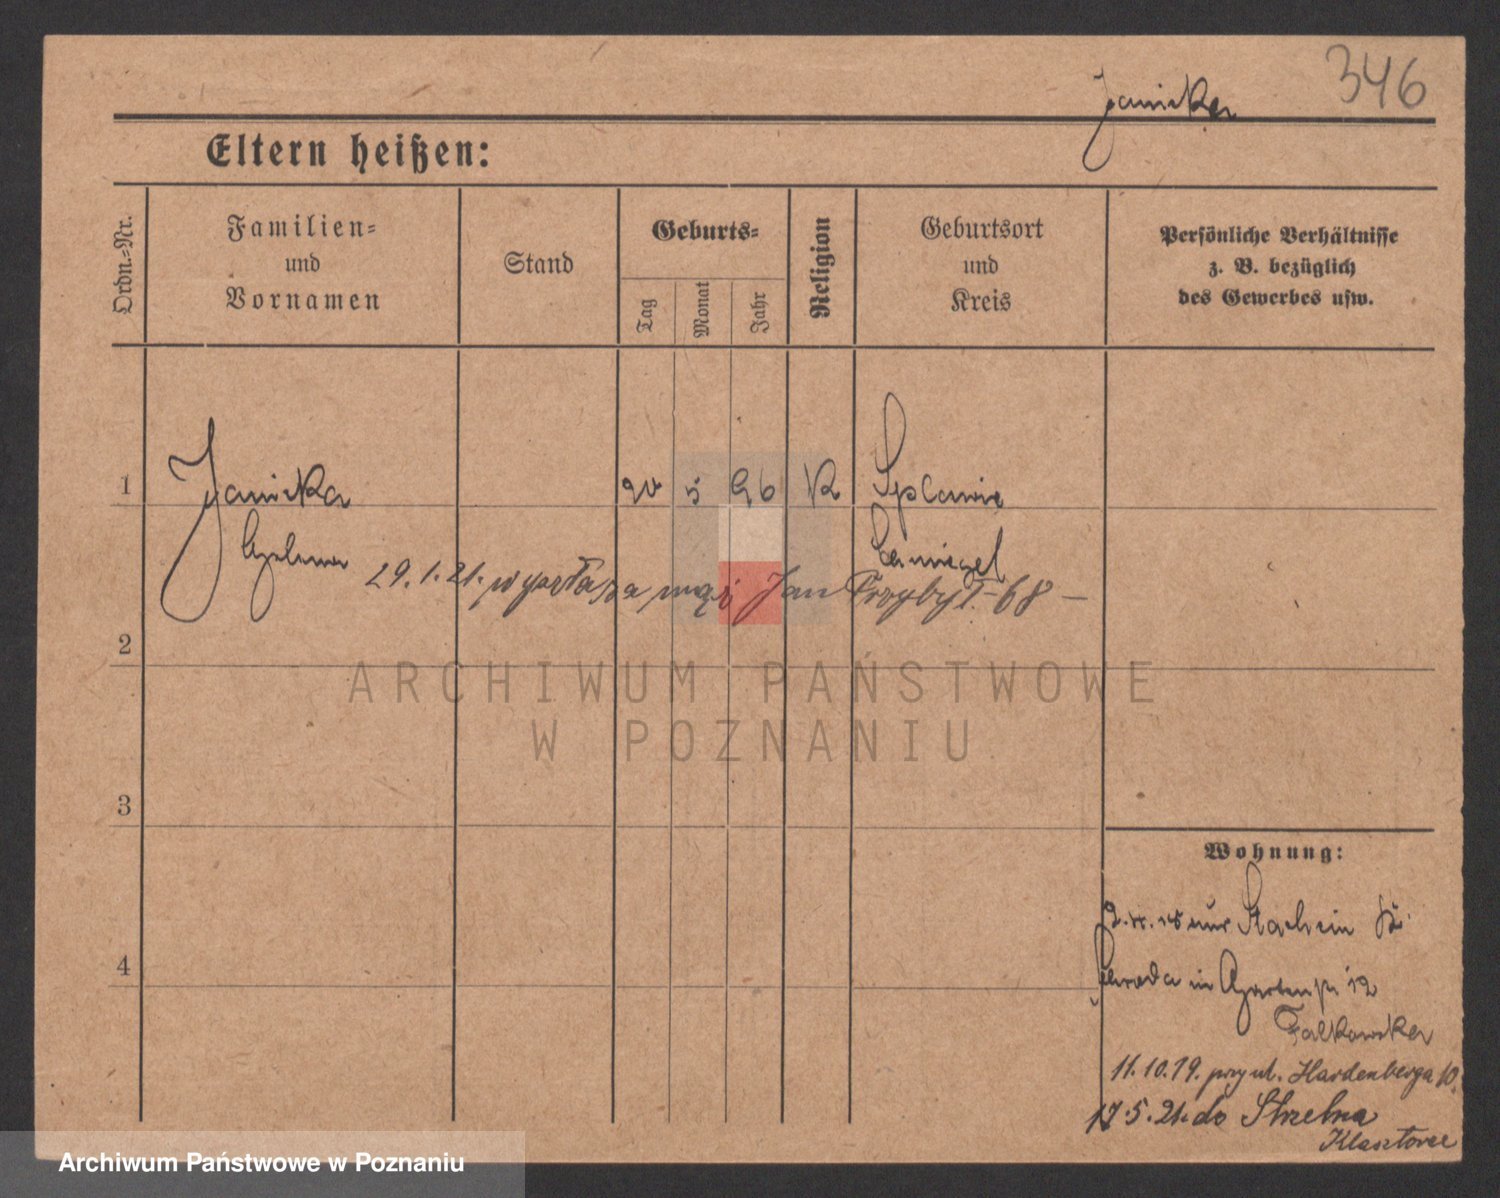 346
Janicka
Eltern heißen:
Ordn.-Nr.
Familien-
und
Vornamen
Stand
Geburts-
Tag
Monat
Jahr
Religion
Geburtsort
und
Kreis
Persönliche Verhältnisse
z. B. bezüglich
des Gewerbes usw.
1
Janicka
5 96 K
Splawie
Schmiegel
29.1.21. mąż Jan Przybył-68-
2
ARCHIWUM PAŃSTWOWE
W POZNANIU
3
Wohnung:
4
in Gartenstr 12
Falkowska
11.10.19. przy ul. Hardenberga 10.
17.5.21. do Strzelna
Archiwum Państwowe w Poznaniu